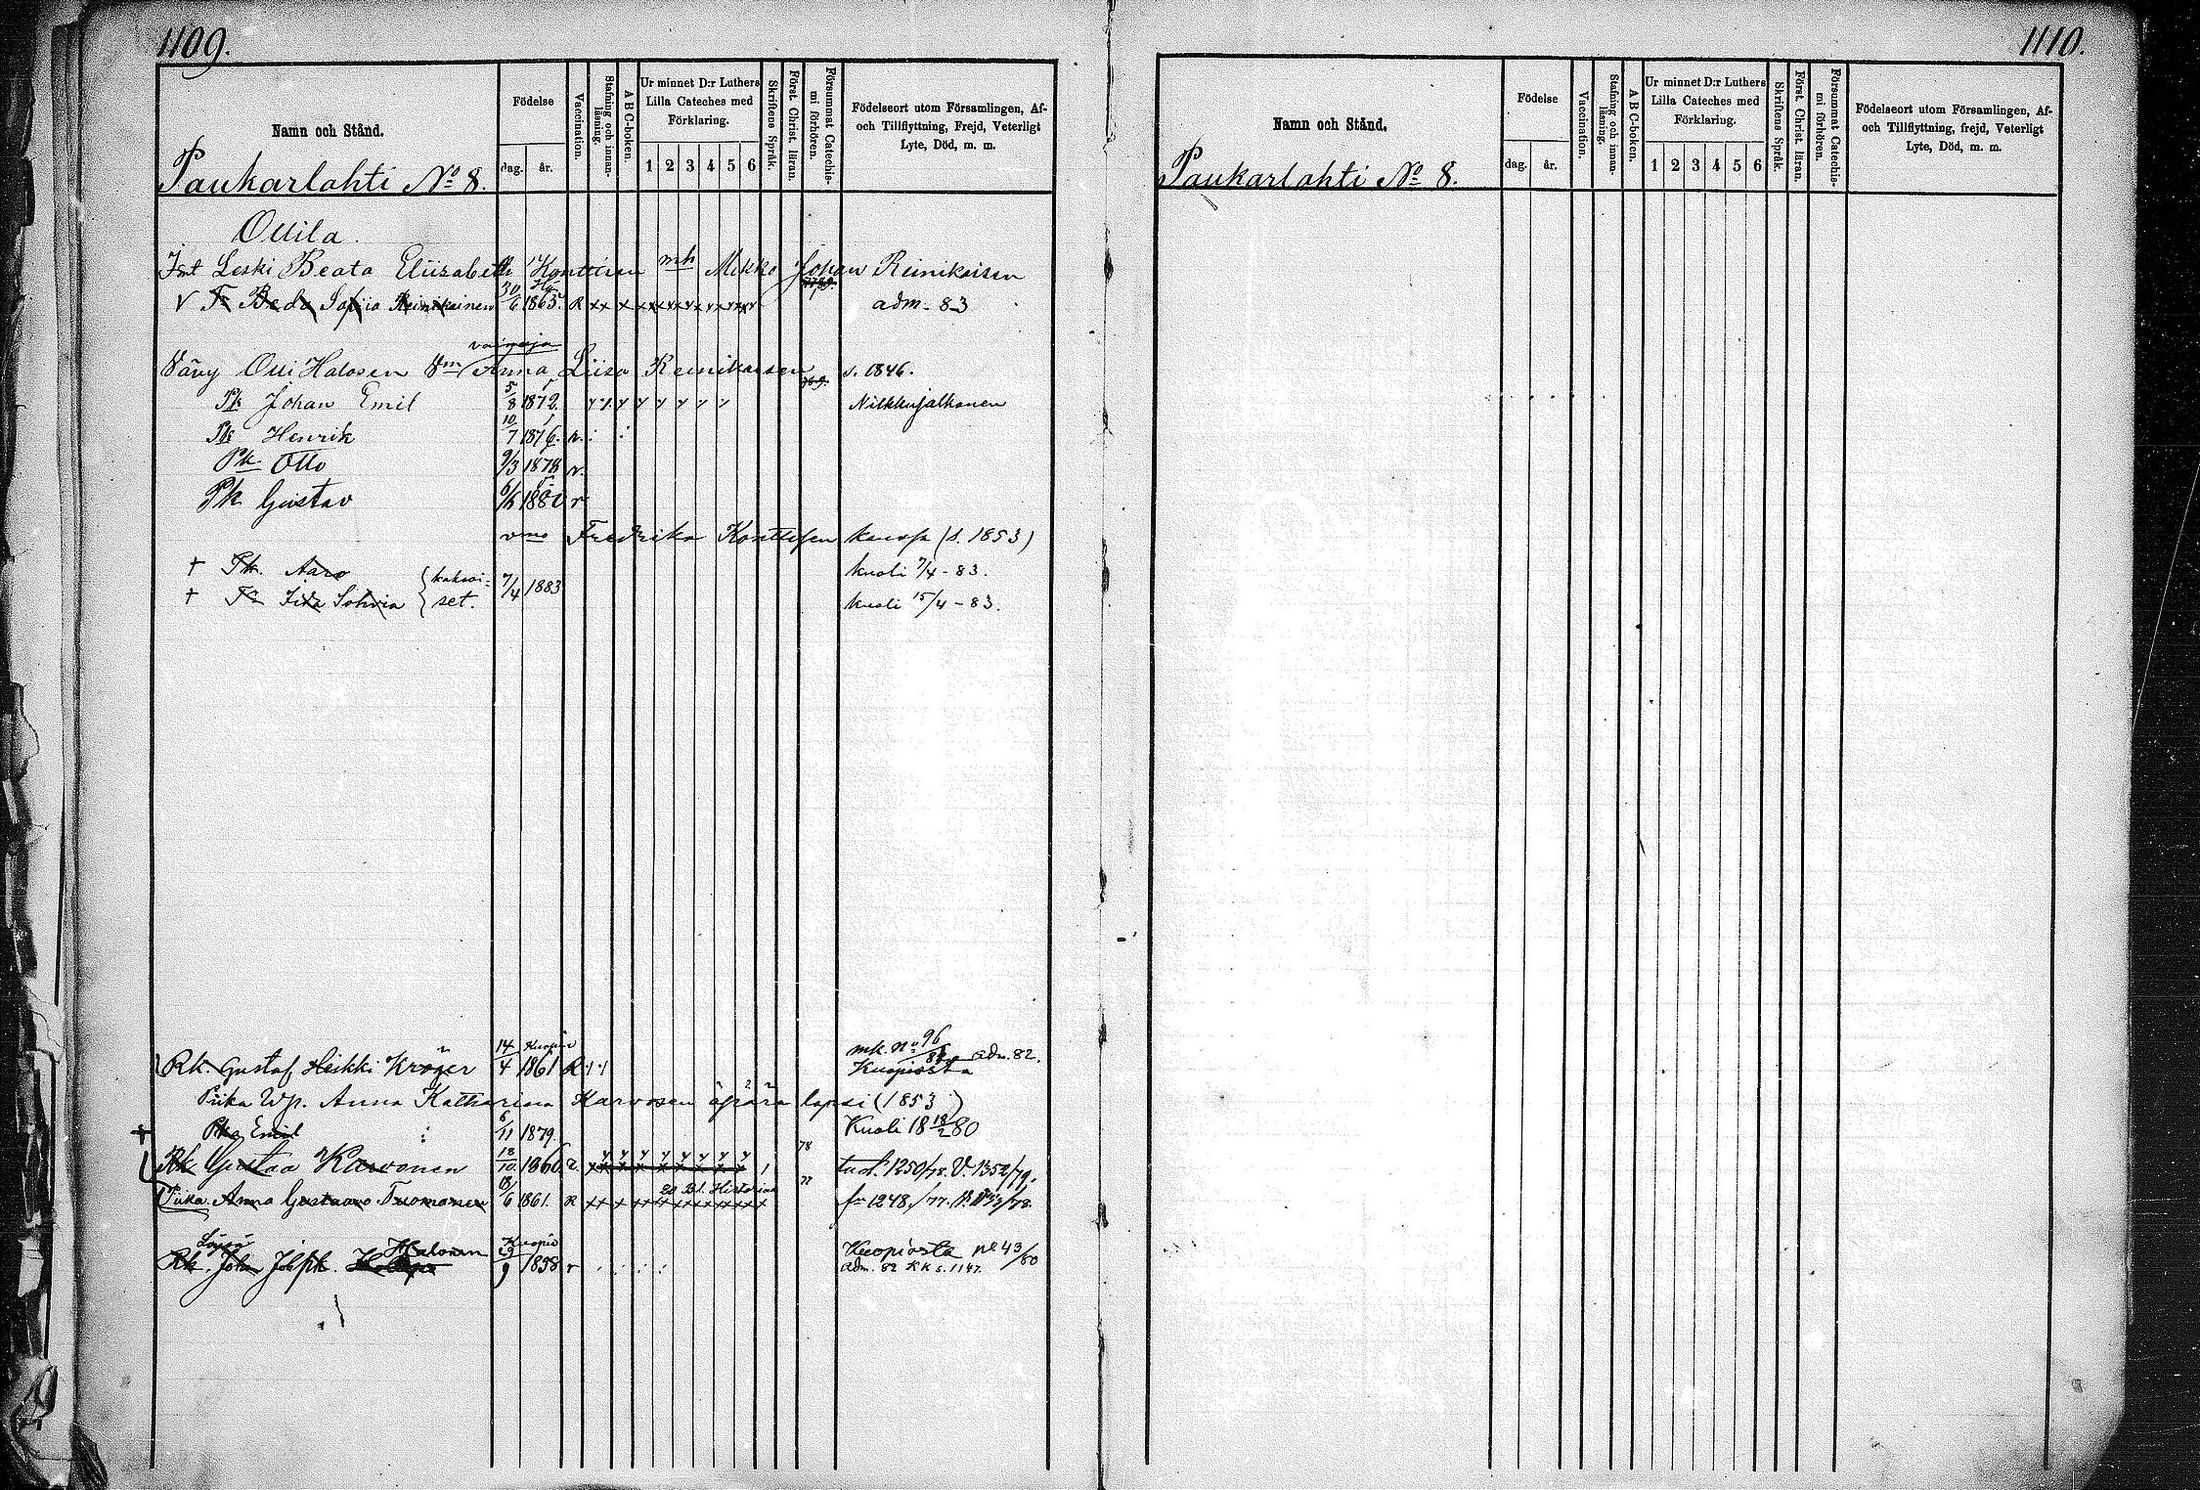 1109.
Namn och Stånd.
Födelse
dag. år.
Vaccination.
Stafning och innan-läsning.
A B C-boken.
Ur minnet D:r Luthers
Lilla Cateches med
Förklaring.
1 2 3 4 5 6
Skriftens Språk.
Först. Christ. läran.
Försummat Catechis-mi förhören.
Födelseort utom Församlingen, Af-
och Tillflyttning, Frejd, Veterligt
Lyte, Död, m. m.
Paukarlahti No 8.
Ollila
Leski Beata Eliisabeth Konttinen Mikko Johan Reinikaisen
V Sofiia Reinikainen 30/6 1863. R adm. 83
vaimoja
Vävy Olli Halosen Anna Liisa Reinikaisen s. 1846.
Pk Johan Emil 5/8 1872. Nilkkujalkanen
Pk Henrik 10/7 1876.
Pk. Otto 9/3 1878
Pk Gustav
Fredrika kanssa (s. 1853)
† Pk. Aaro kuoli 7/4-83.
{kaksoi-
set. 7/4 1883
† Sohvia kuoli 15/4-83.
Rk. Gustaf Heikki Kröger 14/4 Kuopio 1861 R mk. No 96 adm. 82.
Kuopiosta
Piika Anna Katharina Karvosen äpärä lapsi (1853)
Pka Emil 6/11 1879. Kuoli 18 80
Rk Gustaa Karvonen 1860 78
Piika Anna Gustaava Tuomonen 1861. R 20 Bl. Historiaa 77
Halonen
Rk. Joh. 29/9 Kuopio 1858 r Kuopiosta no 43/80
adm. 82 RK s. 1147.
1110.
Namn och Stånd.
Födelse
dag. år.
Vaccination.
Stafning och innan-läsning.
A B C-boken.
Ur minnet D:r Luthers
Lilla Cateches med
Förklaring.
1 2 3 4 5 6
Skriftens Språk.
Först. Christ. läran.
Försummat Catechis-mi förhören.
Födelseort utom Församlingen, Af-
och Tillflyttning, frejd, Veterligt
Lyte, Död, m. m.
Paukarlahti No 8.